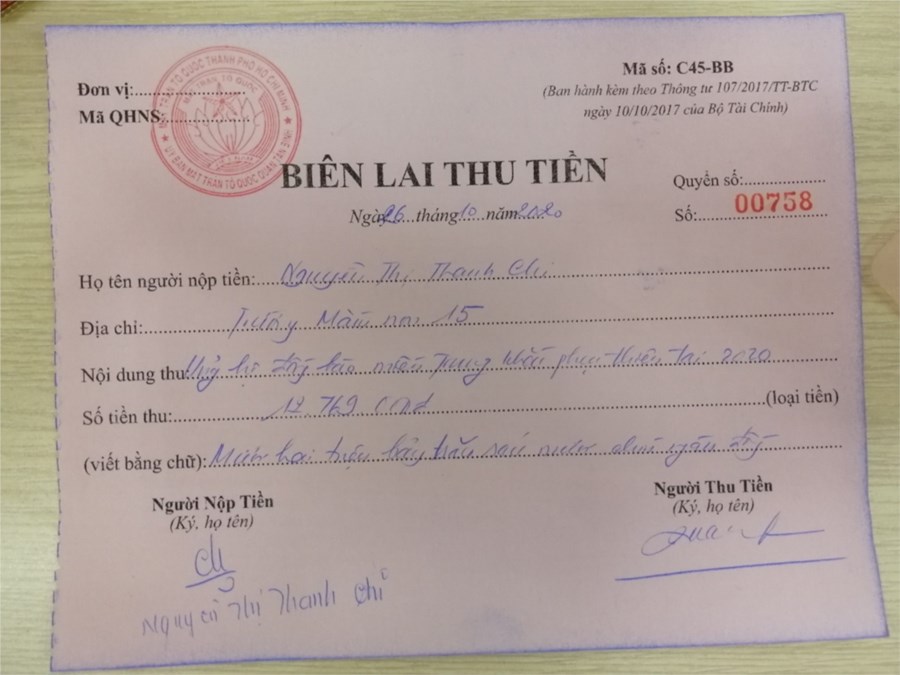 Mã số: C45-BB
(Ban hành kèm theo Thông tư 107/2017/TT-BTC
ngày 10/10/2017 của Bộ Tài Chính)
Đơn vị:
Mã QHNS:
ỦY BAN MẶT TRẬN TỔ QUỐC QUẬN TÂN BÌNH
MẶT TRẬN TỔ QUỐC THÀNH PHỐ HỒ CHÍ MINH
MẶT TRẬN TỔ QUỐC
BIÊN LAI THU TIỀN
Quyển số:
Ngày 26 tháng 10 năm 2020
Số: 00758
Họ tên người nộp tiền: Nguyễn Thị Thanh Chi
Địa chỉ: Trường Mầm non 15
Nội dung thu: Ủng hộ đồng bào miền Trung khắc phục thiên tai 2020
Số tiền thu: 12.769.000đ (loại tiền)
(viết bằng chữ): Mười hai triệu bảy trăm sáu mươi chín ngàn đồng
Người Nộp Tiền
(Ký, họ tên)
Người Thu Tiền
(Ký, họ tên)
Chi
Nguyễn Thị Thanh Chi